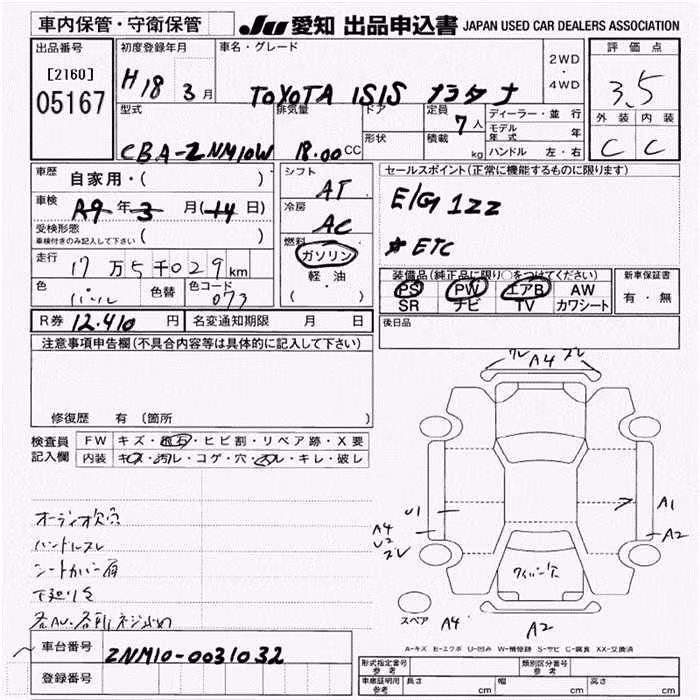 車内保管・守衛保管
JU 愛知 出品申込書 JAPAN USED CAR DEALERS ASSOCIATION
出品番号
[2160]
05167
初度登録年月
H18 3月
車名・グレード
TOYOTA ISIS プラタナ
2WD
・
4WD
評価点
3.5
外装 内装
C C
型式
CBA-ZNM10W
排気量
18.00CC
ドア
形状
定員
7人
積載
kg
ディーラー・並行
モデル年式 年
ハンドル 左・右
車歴
自家用・( )
車検
A9年3月(14日)
受検形態
車検付きのみ記入して下さい ( )
走行
17万5千029km
色
パール
色替
色コード
073
シフト
AT
冷房
AC
燃料
ガソリン
軽油
( ・ )
セールスポイント(正常に機能するものに限ります)
E/G 1ZZ
ETC
装備品(純正品に限り○をつけてください)
PS PW エアB AW
SR ナビ TV カワシート
新車保証書
有・無
R券 12.410円
名変通知期限 月 日
後日品
注意事項申告欄(不具合内容等は具体的に記入して下さい)
修復歴 有 〔箇所 〕
検査員
記入欄
FW キズ・飛石・ヒビ割・リペア跡・X要
内装 キズ・汚レ・コゲ・穴・スレ・キレ・破レ
オーディオ欠品
ハンドルスレ
シートカバー有
下廻りサ
各AU、各所ネジ止め
ワレ A4 ズレ
U1
A4
U2
ズレ
A1
A2
ワイパー欠
スペア
A4
A2
A-キズ E-エクボ U-凹み W-補修跡 S-サビ C-腐食 XX-交換済
車台番号
ZNM10-0031032
登録番号
形式指定番号
参考
類別区分番号
参考
車庫証明用
参考
長さ cm 幅 cm 高さ cm